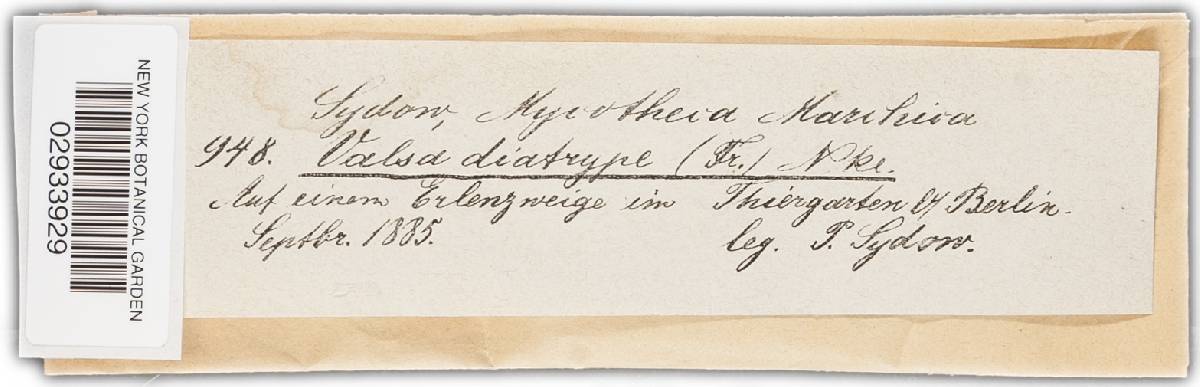 NEW YORK BOTANICAL GARDEN
02933929
Sydow, Mycotheca Marchica
948. Valsa diatrype (Fr.) Nke.
Auf einem Erlenzweige im Thiergarten b/ Berlin.
Septbr. 1885. leg. P. Sydow.